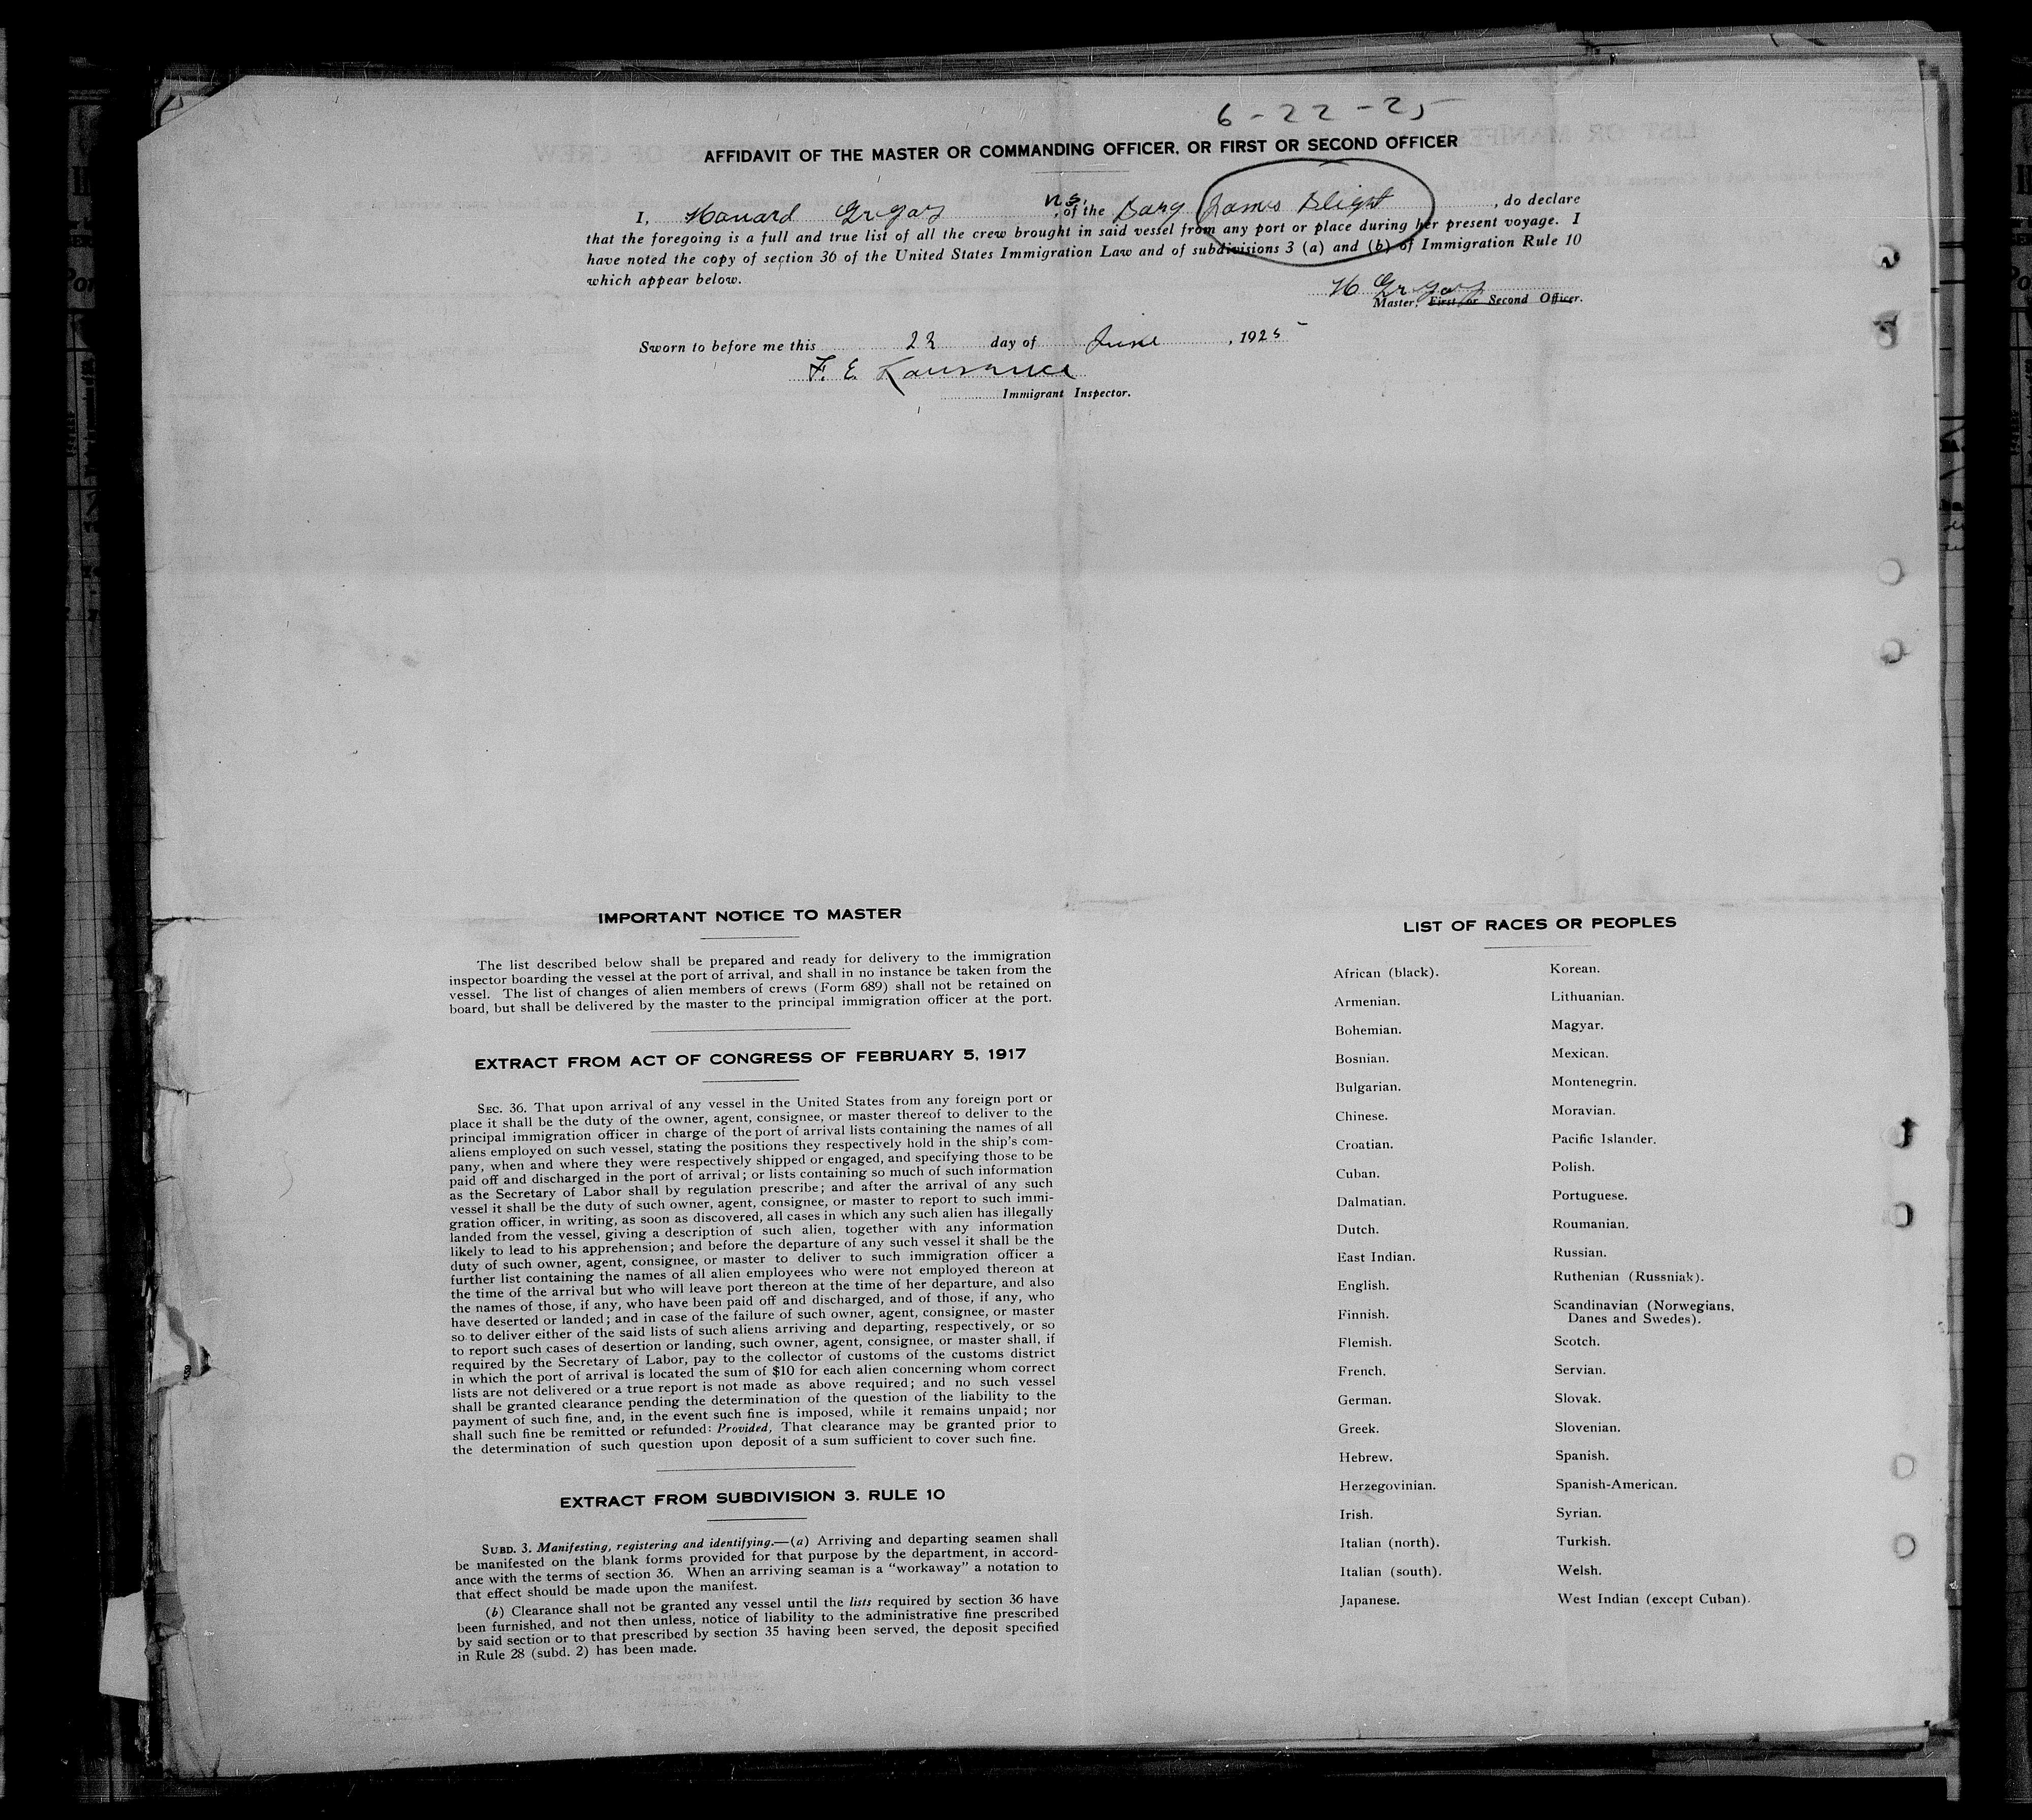 6-22-25
AFFIDAVIT OF THE MASTER OR COMMANDING OFFICER, OR FIRST OR SECOND OFFICER
I, Howard Gregory, of the Barg James Bleight, do declare
that the foregoing is a full and true list of all the crew brought in said vessel from any port or place during her present voyage. I
have noted the copy of section 36 of the United States Immigration Law and of subdivisions 3 (a) and (b) of Immigration Rule 10
which appear below.
H Gregory
Master, First or Second Officer.
Sworn to before me this 22 day of June, 1925
F. E. Lawrence
Immigrant Inspector.
IMPORTANT NOTICE TO MASTER
The list described below shall be prepared and ready for delivery to the immigration
inspector boarding the vessel at the port of arrival, and shall in no instance be taken from the
vessel. The list of changes of alien members of crews (Form 689) shall not be retained on
board, but shall be delivered by the master to the principal immigration officer at the port.
EXTRACT FROM ACT OF CONGRESS OF FEBRUARY 5, 1917
SEC. 36. That upon arrival of any vessel in the United States from any foreign port or
place it shall be the duty of the owner, agent, consignee, or master thereof to deliver to the
principal immigration officer in charge of the port of arrival lists containing the names of all
aliens employed on such vessel, stating the positions they respectively hold in the ship's com-
pany, when and where they were respectively shipped or engaged, and specifying those to be
paid off and discharged in the port of arrival; or lists containing so much of such information
as the Secretary of Labor shall by regulation prescribe; and after the arrival of any such
vessel it shall be the duty of such owner, agent, consignee, or master to report to such immi-
gration officer, in writing, as soon as discovered, all cases in which any such alien has illegally
landed from the vessel, giving a description of such alien, together with any information
likely to lead to his apprehension; and before the departure of any such vessel it shall be the
duty of such owner, agent, consignee, or master to deliver to such immigration officer a
further list containing the names of all alien employees who were not employed thereon at
the time of the arrival but who will leave port thereon at the time of her departure, and also
the names of those, if any, who have been paid off and discharged, and of those, if any, who
have deserted or landed; and in case of the failure of such owner, agent, consignee, or master
so to deliver either of the said lists of such aliens arriving and departing, respectively, or so
to report such cases of desertion or landing, such owner, agent, consignee, or master shall, if
required by the Secretary of Labor, pay to the collector of customs of the customs district
in which the port of arrival is located the sum of $10 for each alien concerning whom correct
lists are not delivered or a true report is not made as above required; and no such vessel
shall be granted clearance pending the determination of the question of the liability to the
payment of such fine, and, in the event such fine is imposed, while it remains unpaid; nor
shall such fine be remitted or refunded: Provided, That clearance may be granted prior to
the determination of such question upon deposit of a sum sufficient to cover such fine.
EXTRACT FROM SUBDIVISION 3. RULE 10
SUBD. 3. Manifesting, registering and identifying.—(a) Arriving and departing seamen shall
be manifested on the blank forms provided for that purpose by the department, in accord-
ance with the terms of section 36. When an arriving seaman is a "workaway" a notation to
that effect should be made upon the manifest.
(b) Clearance shall not be granted any vessel until the lists required by section 36 have
been furnished, and not then unless, notice of liability to the administrative fine prescribed
by said section or to that prescribed by section 35 having been served, the deposit specified
in Rule 28 (subd. 2) has been made.
LIST OF RACES OR PEOPLES
African (black).
Armenian.
Bohemian.
Bosnian.
Bulgarian.
Chinese.
Croatian.
Cuban.
Dalmatian.
Dutch.
East Indian.
English.
Finnish.
Flemish.
French.
German.
Greek.
Hebrew.
Herzegovinian.
Irish.
Italian (north).
Italian (south).
Japanese.
Korean.
Lithuanian.
Magyar.
Mexican.
Montenegrin.
Moravian.
Pacific Islander.
Polish.
Portuguese.
Roumanian.
Russian.
Ruthenian (Russniak).
Scandinavian (Norwegians,
Danes and Swedes).
Scotch.
Servian.
Slovak.
Slovenian.
Spanish.
Spanish-American.
Syrian.
Turkish.
Welsh.
West Indian (except Cuban).